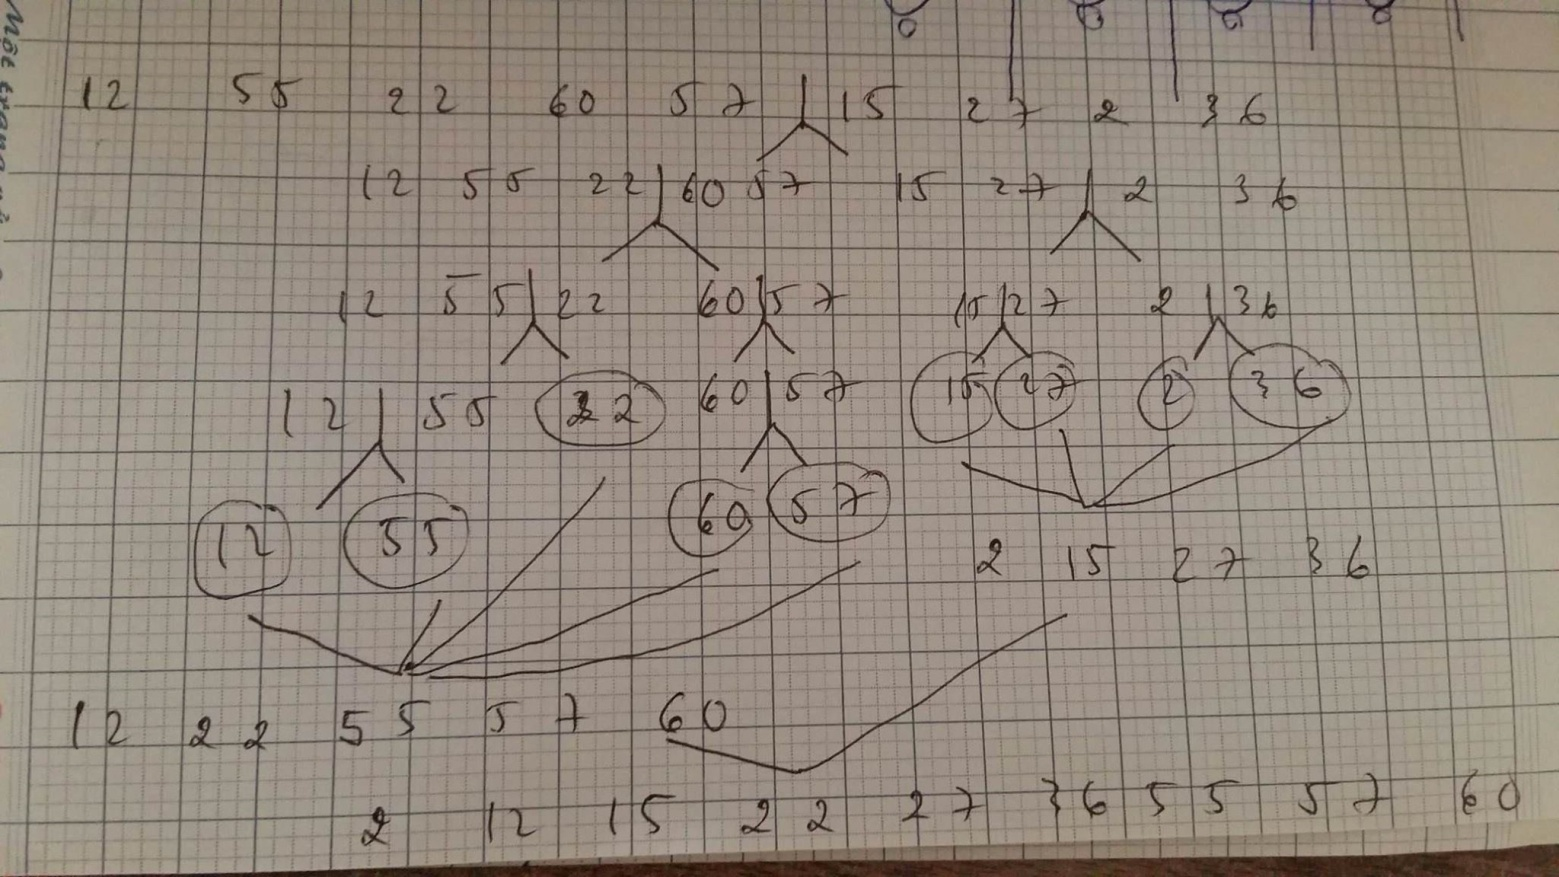 12 55 22 60 57 | 15 27 2 36
12 55 22 | 60 57 15 27 | 2 36
12 55 | 22 60 | 57 15 | 27 2 | 36
12 | 55 22 60 | 57 15 27 2 36
12 55 60 57
2 15 27 36
12 22 55 57 60
2 12 15 22 27 36 55 57 60